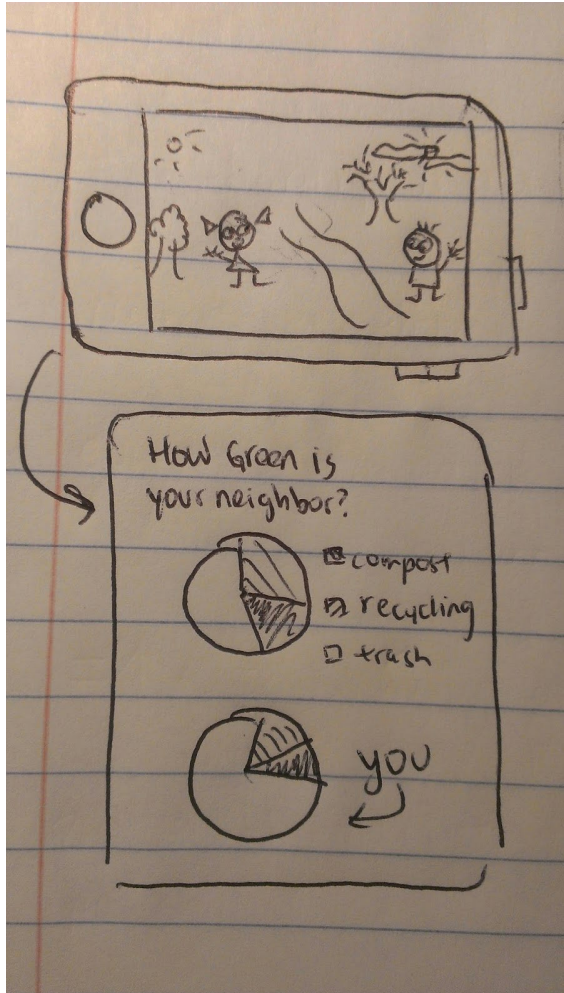 How Green is
your neighbor?
compost
recycling
trash
you